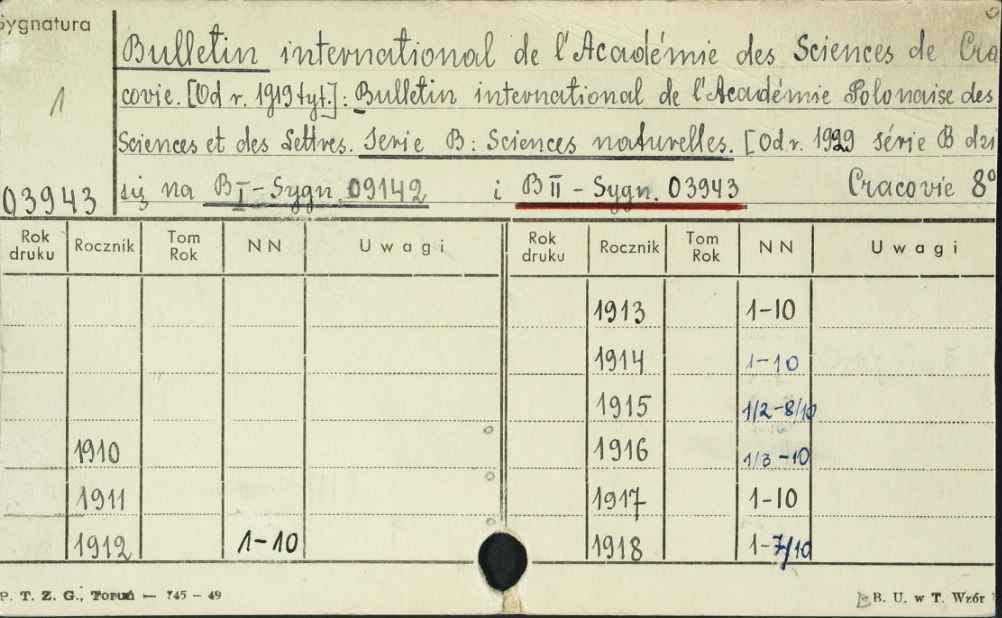 Sygnatura
Bulletin international de l'Académie des Sciences de Cra
1
covie. [Od r. 1919 tyt.]: Bulletin international de l'Académie Polonaise des
Sciences et des Lettres. Serie B: Sciences naturelles. [Od r. 1929 série B dzi
03943 się na B I - Sygn. 09142 i B II - Sygn. 03943 Cracovie 8°
Rok druku Rocznik Tom Rok NN Uwagi Rok druku Rocznik Tom Rok NN Uwagi
1913 1-10
1914 1-10
1915 1/2-8/10
1910 1916 1/3-10
1911 1917 1-10
1912 1-10 1918 1-7/10
P. T. Z. G., Toruń — 745 - 49 B. U. w T. Wzór